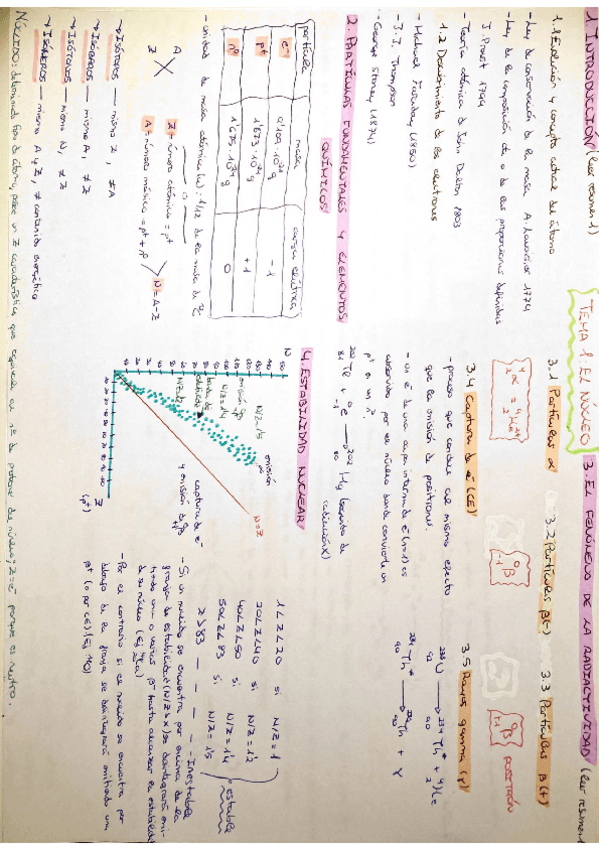 TEMA 1. EL NÚCLEO
1. INTRODUCCIÓN (leer resumen 1)
1.1 Evolución y concepto actual del átomo
- Ley de conservación de la masa A. Lavoisier 1774
- Ley de la composición cte o de las proporciones definidas
J. Proust 1794
- Teoría atómica de John Dalton 1803
1.2 Descubrimiento de los electrones
- Michael Faraday (1850)
- J.J. Thompson
- George Stoney (1874)
2. PARTÍCULAS FUNDAMENTALES Y ELEMENTOS
QUÍMICOS
partícula masa carga eléctrica
e⁻ -1
p⁺ 1'673·10⁻²⁴ g +1
n⁰ 1'675·10⁻²⁴ g 0
- unidad de masa atómica (u): 1/12 de la masa de
A
Z
X
Z = número atómico = p⁺
A = número másico = p⁺ + n⁰
N = A - Z
→ ISÓTOPOS — mismo Z, ≠ A
→ ISÓBAROS — mismo A, ≠ Z
→ ISÓTONOS — mismo N, ≠ Z
→ ISÓMEROS — mismo A y Z, ≠ contenido energético
NÚCLIDO: determinado tipo de átomo, posee un Z característico que equivale al nº de protones del núcleo; Z = ē porque es neutro.
3. EL FENÓMENO DE LA RADIACTIVIDAD (leer resumen
3.1 Partículas α
⁴₂α = ⁴₂He²⁺
3.2 Partículas β(-)
⁰₋₁β
3.3 Partículas β(+)
⁰₊₁β POSITRÓN
3.4 Captura de ē (CE)
- proceso que conduce al mismo efecto
que la emisión de positrones.
- un ē de una capa interna de ē (n=1) es
absorbido por el núcleo donde convierte un
p⁺ a un n⁰
²⁰²₈₁Tl + ⁰₋₁e → ²⁰²₈₀Hg (
3.5 Rayos gamma (γ)
²³⁸₉₂U → ²³⁴₉₀Th* + ⁴₂He
²³⁴₉₀Th* → ²³⁴₉₀Th + γ
4. ESTABILIDAD NUCLEAR
N
N/Z 1'5
emisión
N=Z
N/Z 1'4
N/Z 1
captura de ē
y emisión de β⁺
Z
(p⁺)
1 ∠ Z ∠ 20 si N/Z = 1
20 ∠ Z ∠ 40 si N/Z = 1'2
40 ∠ Z ∠ 50 si N/Z = 1'4
50 ∠ Z ∠ 83 si N/Z = 1'5
estable
Z > 83 — — — Inestable
- Si un núclido se encuentra por encima de la
franja de estabilidad se desintegrará emi-
tiendo una o varias β⁻ hasta alcanzar la estabilidad
de su núcleo
- Por el contrario si el núclido se encuentra por
debajo de la franja se desintegrará emitiendo un
β⁺ (o por CE)